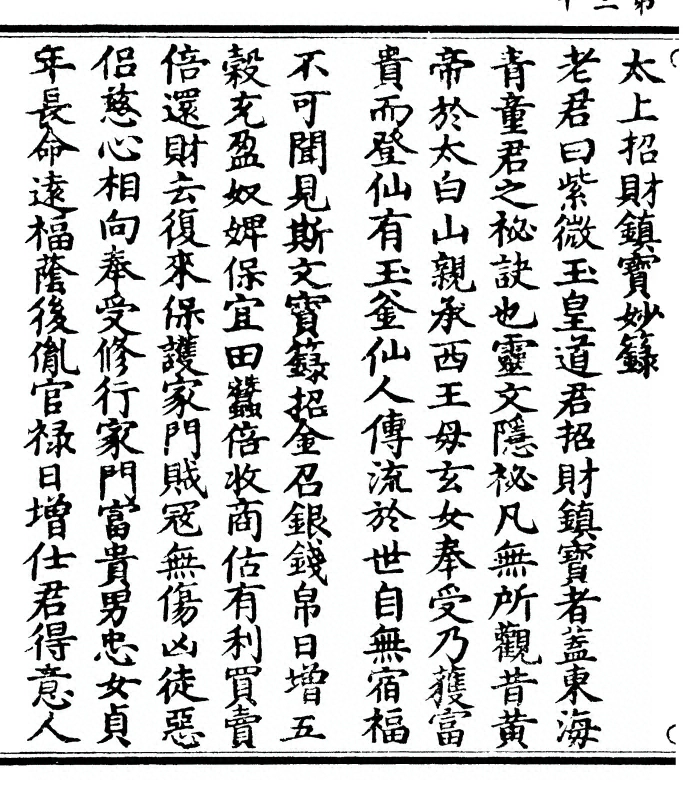 太上招財鎮寶妙籙
老君曰紫微玉皇道君招財鎮寶者蓋東海
青童君之秘訣也靈文隱祕凡無所觀昔黃
帝於太白山親承西王母玄女奉受乃獲富
貴而登仙有玉釜仙人傳流於世自無宿福
不可聞見斯文寶籙招金召銀錢帛日增五
穀充盈奴婢保宜田蠶倍收商估有利買賣
倍還財去復來保護家門賊冦無傷凶徒惡
侶慈心相向奉受修行家門富貴男忠女貞
年長命遠福蔭後胤官禄日增仕君得意人